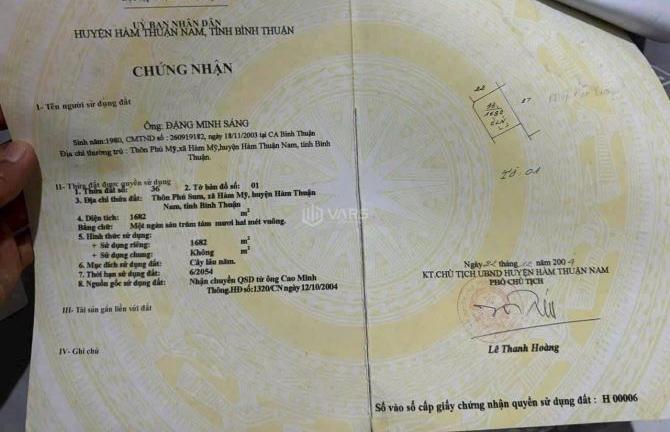 ỦY BAN NHÂN DÂN
HUYỆN HÀM THUẬN NAM, TỈNH BÌNH THUẬN
CHỨNG NHẬN
I- Tên người sử dụng đất
Ông: ĐẶNG MINH SÁNG
Sinh năm:1980, CMTND số : 260919182, ngày 18/11/2003 tại CA Bình Thuận
Địa chỉ thường trú : Thôn Phú Mỹ,xã Hàm Mỹ,huyện Hàm Thuận Nam, tỉnh Bình
Thuận.
II- Thửa đất được quyền sử dụng
1. Thửa đất số: 36 2. Tờ bản đồ số: 01
3. Địa chỉ thửa đất: Thôn Phú Sum, xã Hàm Mỹ, huyện Hàm Thuận
Nam, tỉnh Bình Thuận
4. Diện tích: 1682 m2
Bằng chữ: Một ngàn sáu trăm tám mươi hai mét vuông.
5. Hình thức sử dụng:
+ Sử dụng riêng: 1682 m2
+ Sử dụng chung: Không m2
6. Mục đích sử dụng đất: Cây lâu năm.
7. Thời hạn sử dụng đất: 6/2054
8. Nguồn gốc sử dụng đất: Nhận chuyển QSD từ ông Cao Minh
Thông.HĐ số:1320/CN ngày 12/10/2004
III- Tài sản gắn liền với đất
IV- Ghi chú
VARS
27
Tờ 01
Ngày tháng 12 năm 2004
KT.CHỦ TỊCH UBND HUYỆN HÀM THUẬN NAM
PHÓ CHỦ TỊCH
Lê Thanh Hoàng
Số vào sổ cấp giấy chứng nhận quyền sử dụng đất : H 00006